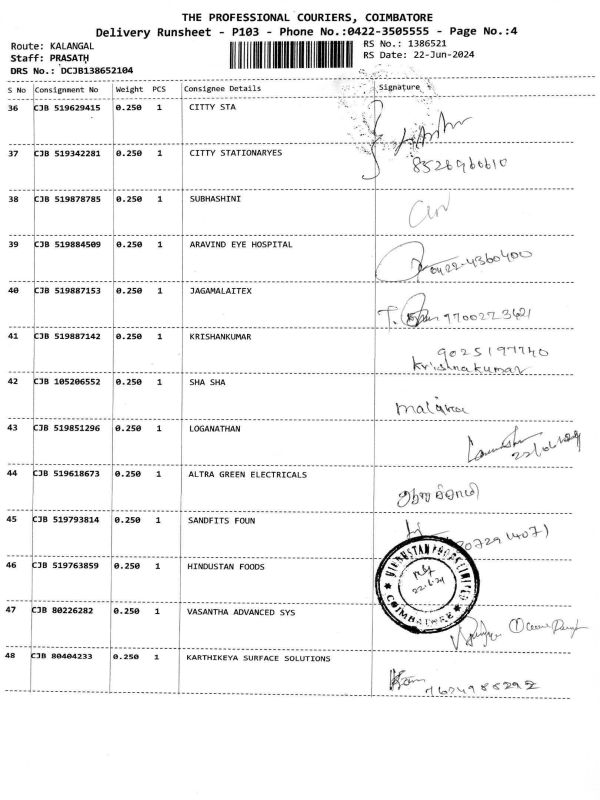 THE PROFESSIONAL COURIERS, COIMBATORE
Delivery Runsheet - P103 - Phone No.:0422-3505555 - Page No.:4
Route: KALANGAL
RS No.: 1386521
Staff: PRASATH
RS Date: 22-Jun-2024
DRS No.: DCJB138652104
S No Consignment No Weight PCS Consignee Details Signature
36 CJB 519629415 0.250 1 CITTY STA
37 CJB 519342281 0.250 1 CITTY STATIONARYES
8526960610
38 CJB 519878785 0.250 1 SUBHASHINI
39 CJB 519884509 0.250 1 ARAVIND EYE HOSPITAL
0422-4360400
40 CJB 519887153 0.250 1 JAGAMALAITEX
41 CJB 519887142 0.250 1 KRISHANKUMAR
Krishnakumar
42 CJB 105206552 0.250 1 SHA SHA
43 CJB 519851296 0.250 1 LOGANATHAN
44 CJB 519618673 0.250 1 ALTRA GREEN ELECTRICALS
45 CJB 519793814 0.250 1 SANDFITS FOUN
46 CJB 519763859 0.250 1 HINDUSTAN FOODS
HINDUSTAN FOODS LIMITED
COIMBATORE
22.6.24
47 CJB 80226282 0.250 1 VASANTHA ADVANCED SYS
48 CJB 80404233 0.250 1 KARTHIKEYA SURFACE SOLUTIONS